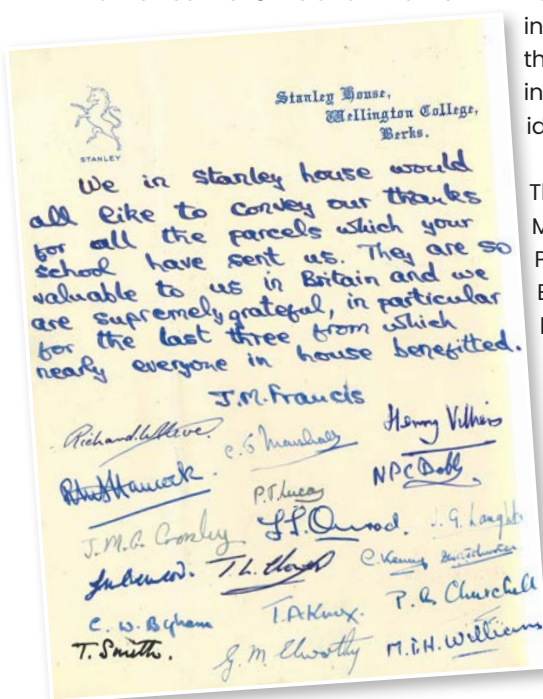 STANLEY
Stanley House,
Wellington College,
Berks.
We in Stanley house would
all like to convey our thanks
for all the parcels which your
school have sent us. They are so
valuable to us in Britain and we
are supremely grateful, in particular
for the last three from which
nearly everyone in house benefitted.
J.M. Francis
Richard
C. S. Marshall
Henry Villiers
Hancock.
P.T. Lucas
NPC Dobb
J.M.A. Crossley
Ormerod.
J. G.
T. L. Lloyd
C. Kenny
C. W. Bigham
T.A Knox.
P. R. Churchill
T. Smith.
G. M. Elworthy
M.I.H. Williams
in
th
in